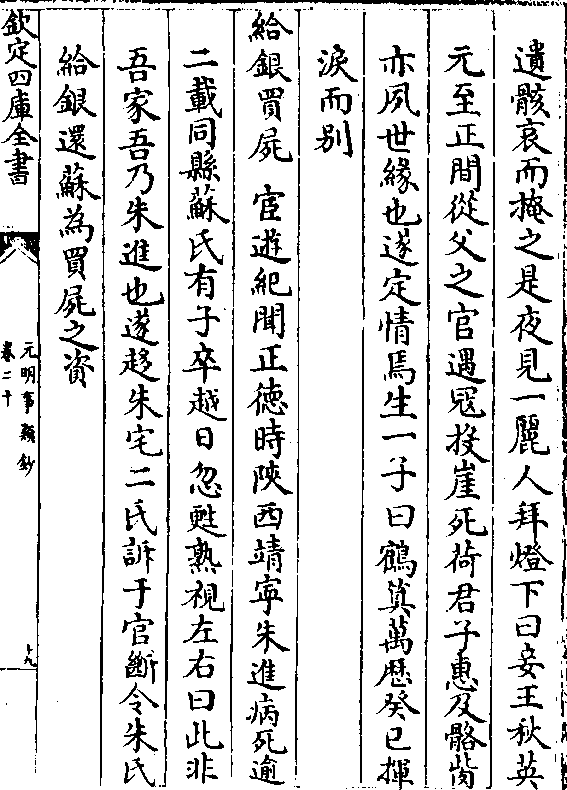 遺骸哀而掩之是夜見一麗人拜燈下曰妾王秋英
元至正間從父之官遇冦投崖死荷君子惠及骼胔
亦夙世緣也遂定情焉生一子曰鶴筭萬歴癸巳揮
淚而别
給銀買屍 宦遊紀聞正徳時陜西靖寧朱進病死逾
二載同縣蘇氏有子卒越日忽甦熟視左右曰此非
吾家吾乃朱進也遂趍朱宅二氏訴于官斷令朱氏
給銀還蘇為買屍之資
欽定四庫全書
元明事類鈔
卷二十
十九